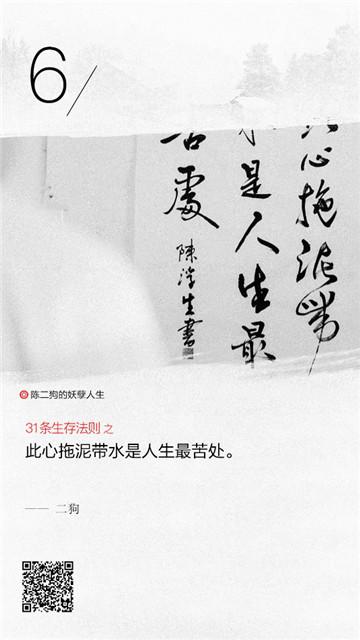 6/
此心拖泥带
水是人生最
苦處
陳浮生書
陈二狗的妖孽人生
31条生存法则 之
此心拖泥带水是人生最苦处。
—— 二狗